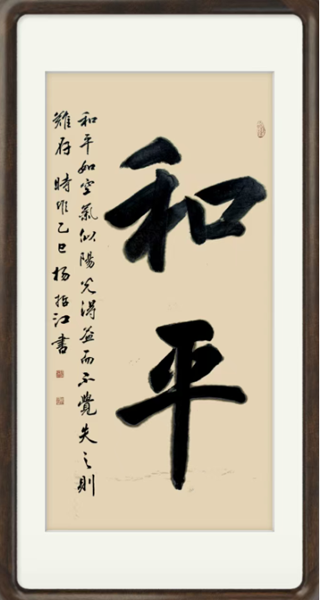 和平
和平如空氣似陽光得益而不覺失之則
難存 時惟乙巳 楊江書